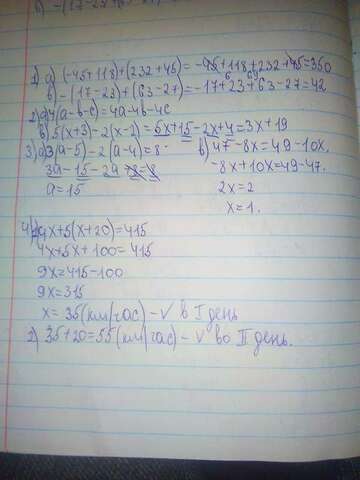 1) а) (-45+118)+(232+45)=-45+118+232+45=350
б) -(17-23)+(63-27)=-17+23+63-27=42
2) а) 4(a-b-c)=4a-4b-4c
б) 5(x+3)-2(x-2)=5x+15-2x+4=3x+19
3) а) 3(a-5)-2(a-4)=8
3a-15-2a+8=8
a=15
б) 47-8x=49-10x.
-8x+10x=49-47.
2x=2
x=1.
4) 1) 4x+5(x+20)=415
4x+5x+100=415
9x=415-100
9x=315
x=35(км/час)-V в I день
2) 35+20=55(км/час)-V во II день.